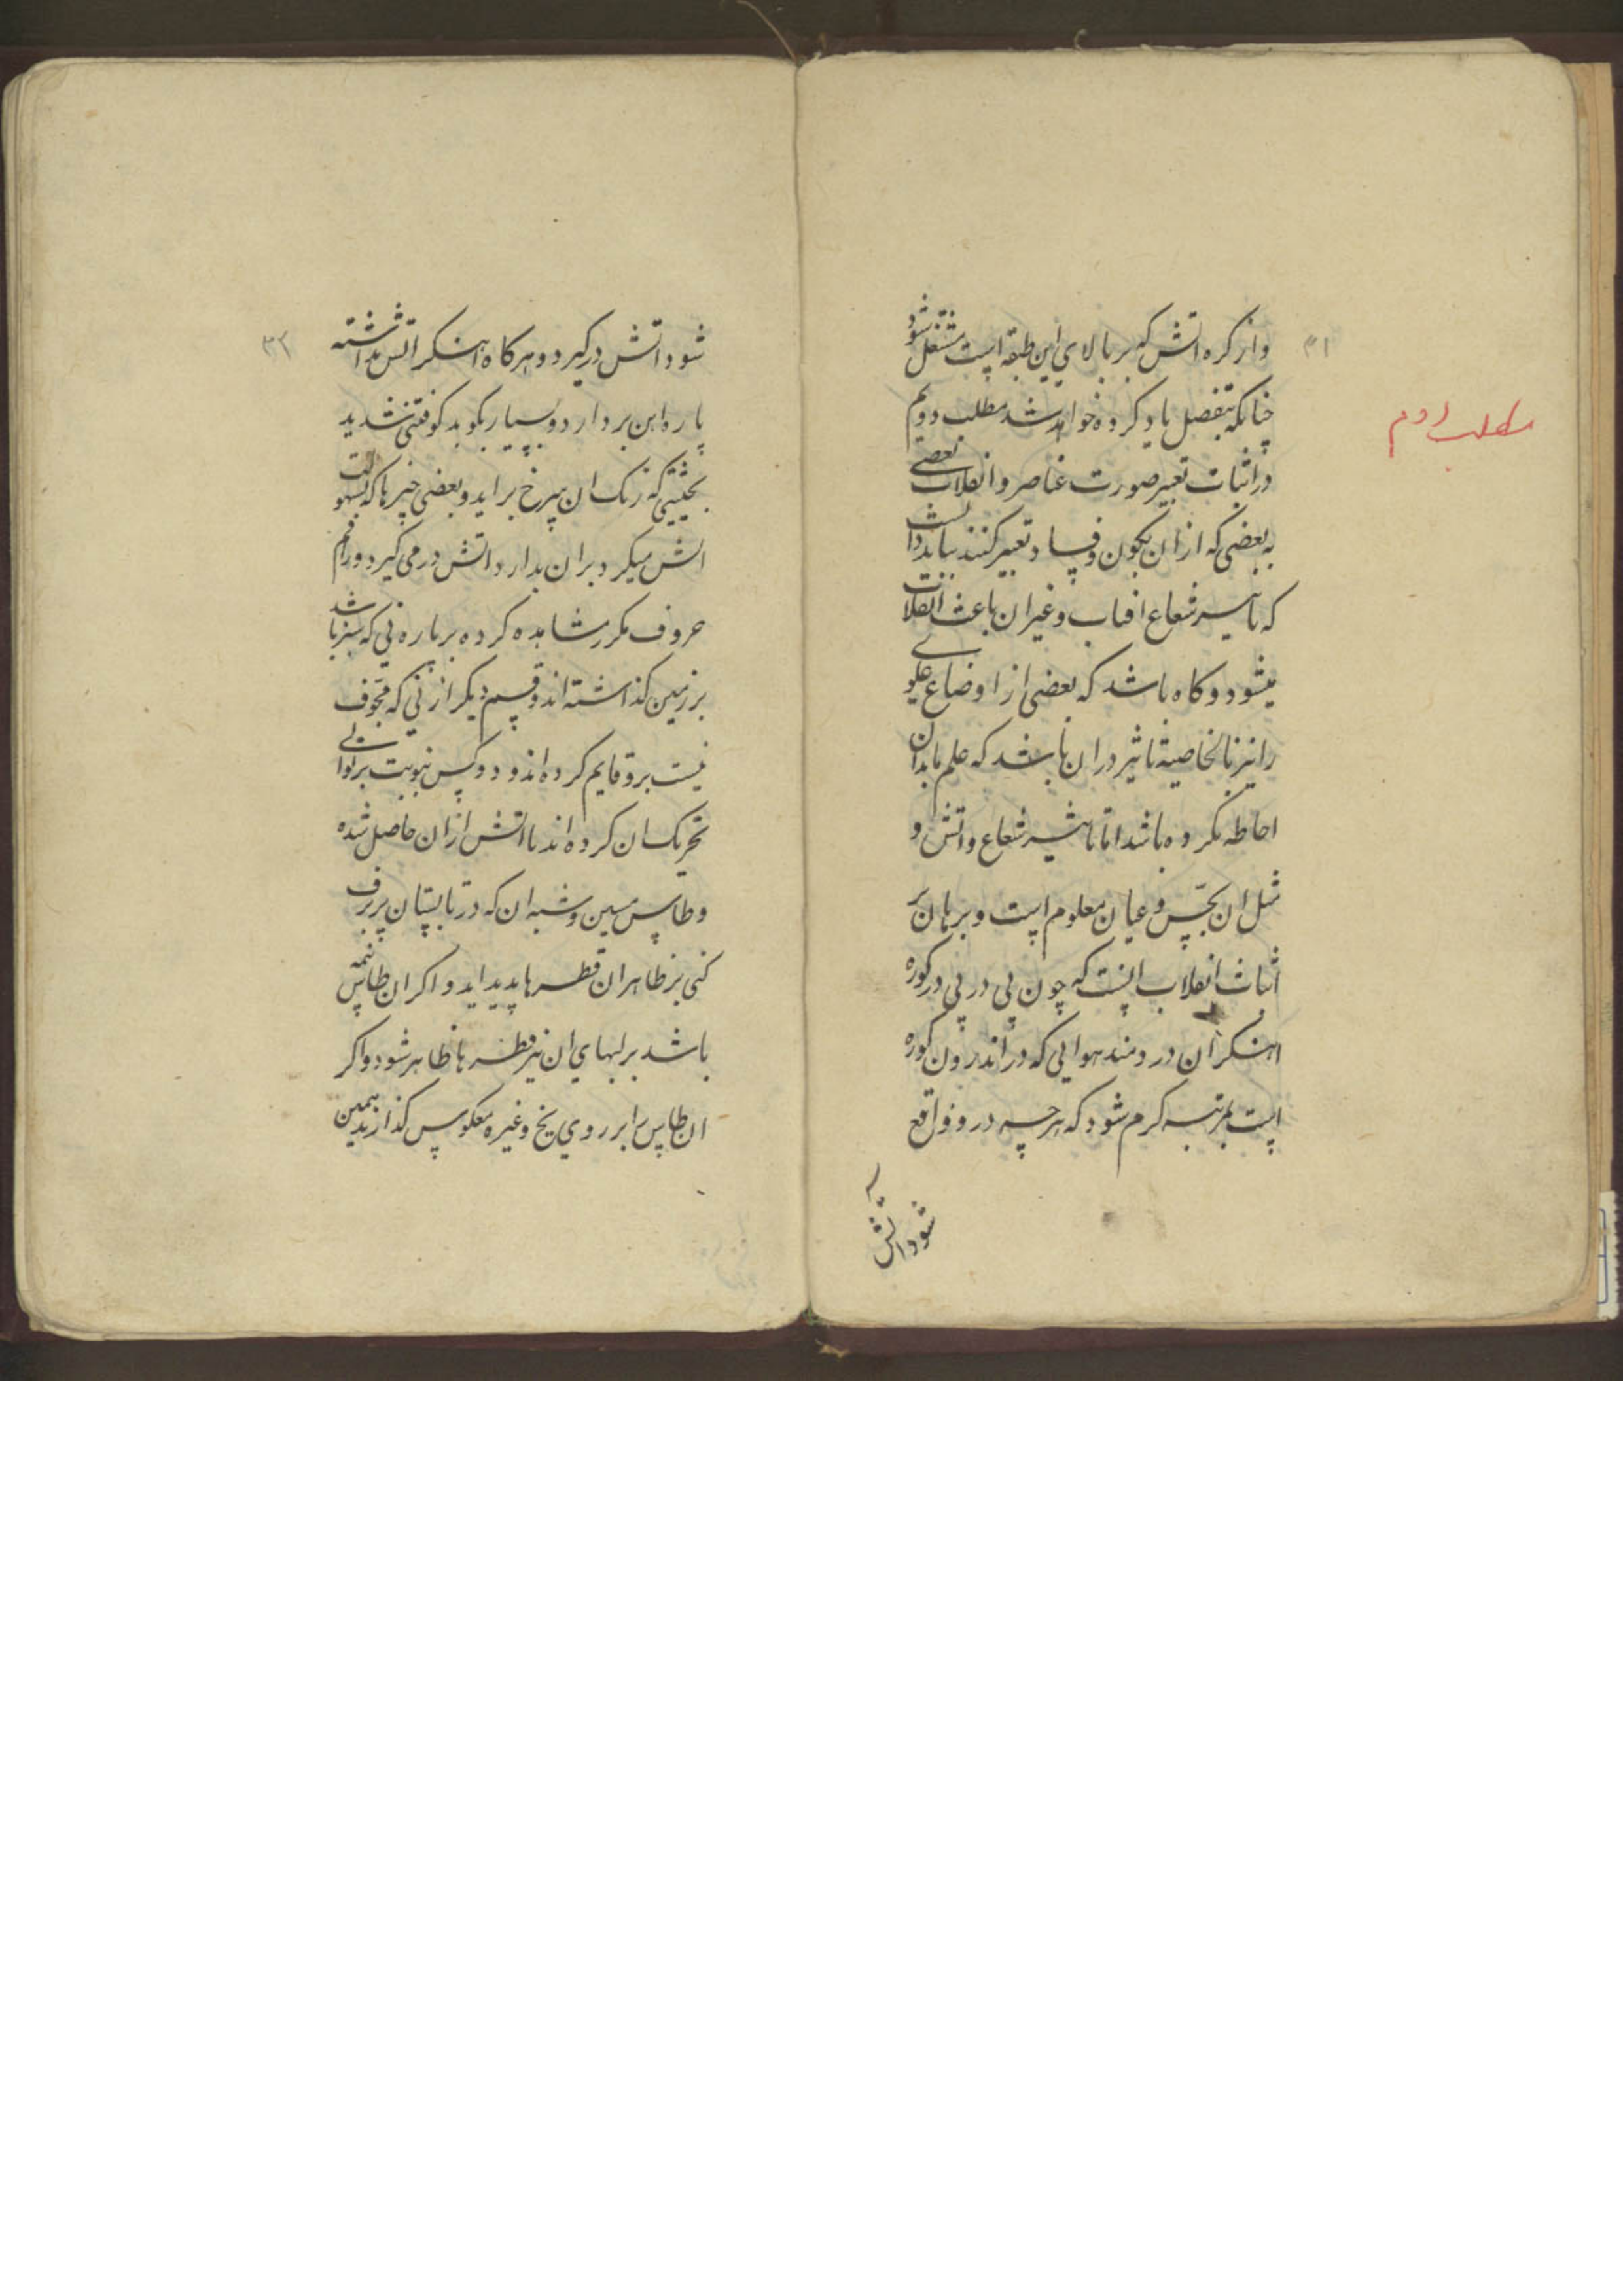 ۳۱
و از کره اتش که بر بالای این طبقه است مشتعل شود
چنانکه بتفصیل یاد کرده خواهد شد مطلب دویم
مطلب دوم
در اثبات تغییر صورت عناصر و انقلاب بعضی
به بعضی که از ان بکون و فساد تعبیر کنند بباید دانست
که تاثیر شعاع افتاب و غیر ان باعث انقلاب
میشود و کاه باشد که بعضی از اوضاع علوی
را نیز بالخاصیة تاثیر در ان باشد که علم ما بدان
احاطه نکرده باشد اما تاثیر شعاع و اتش و
مثل ان بحس و عیان معلوم است و برهان بر
اثبات انقلاب انست که چون پی در پی در کوره
اهنکران در دمند هوایی که در اندرون کوره
است بمرتبه کرم شود که هر چه در و واقع
شود اتش
۳۲
شود اتش در کیرد و هرکاه اهنکر اتش نداشته
پاره اهن بردارد و بسیار بکوبد کوفتنی شدید
بحیثیتی که رنک ان سرخ براید و بعضی چیزها که بسهولت
اتش میکیرد بران بدارد اتش در می کیرد و راقم
حروف مکرر مشاهده کرده بر پاره نی که سبز باشد
بر زمین کذاشته اند و قسم دیکر از نی که مجوف
نیست برو قایم کرده اند و دو کس بنوبت بر توالی
تحریک ان کرده اند تا اتش از ان حاصل شده
و طاس مسین و شبه ان که در تابستان پر برف
کنی بر ظاهر ان قطره ها پدید اید و اکر ان طاس نیمه
باشد بر لبهای ان نیز قطره ها ظاهر شود و اکر
ان طاس را بر روی یخ و غیره معکوس کذارند همین